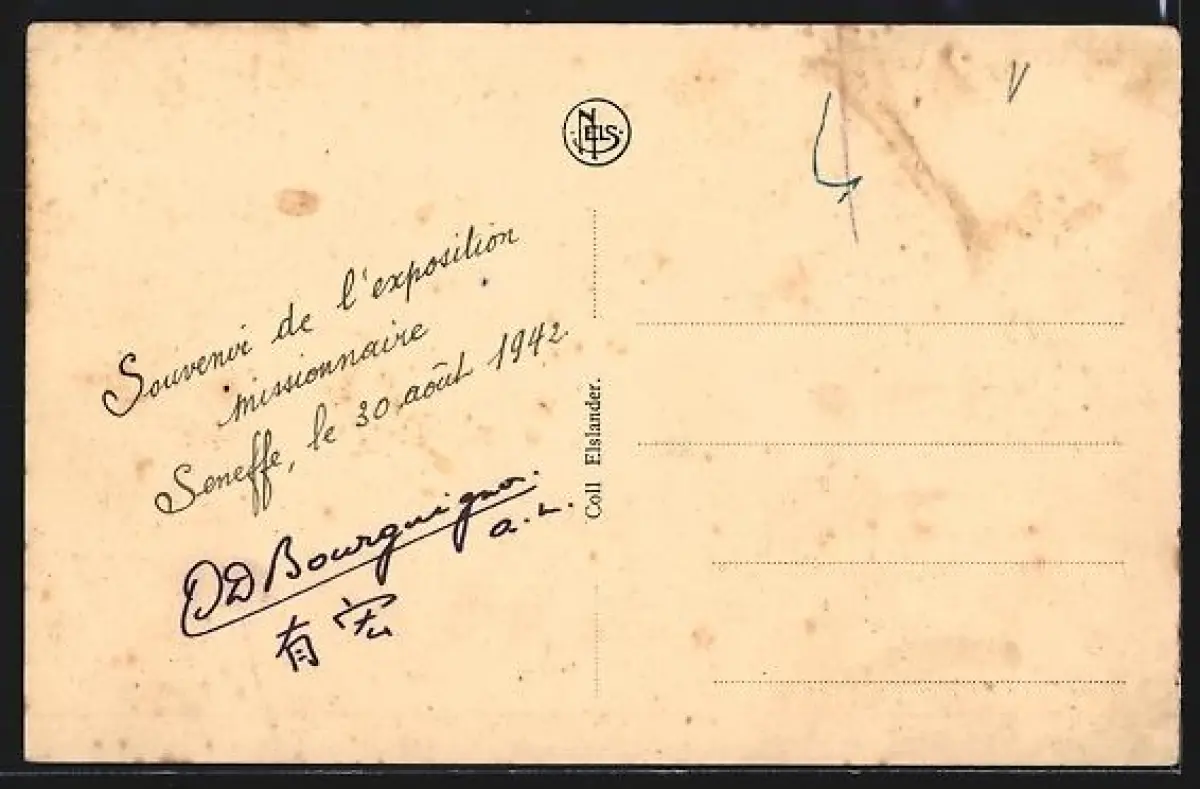 NELS
Souvenir de l'exposition
missionnaire
Seneffe, le 30 août 1942.
Bourguignon.
a.
有
Coll Elslander.
4
V